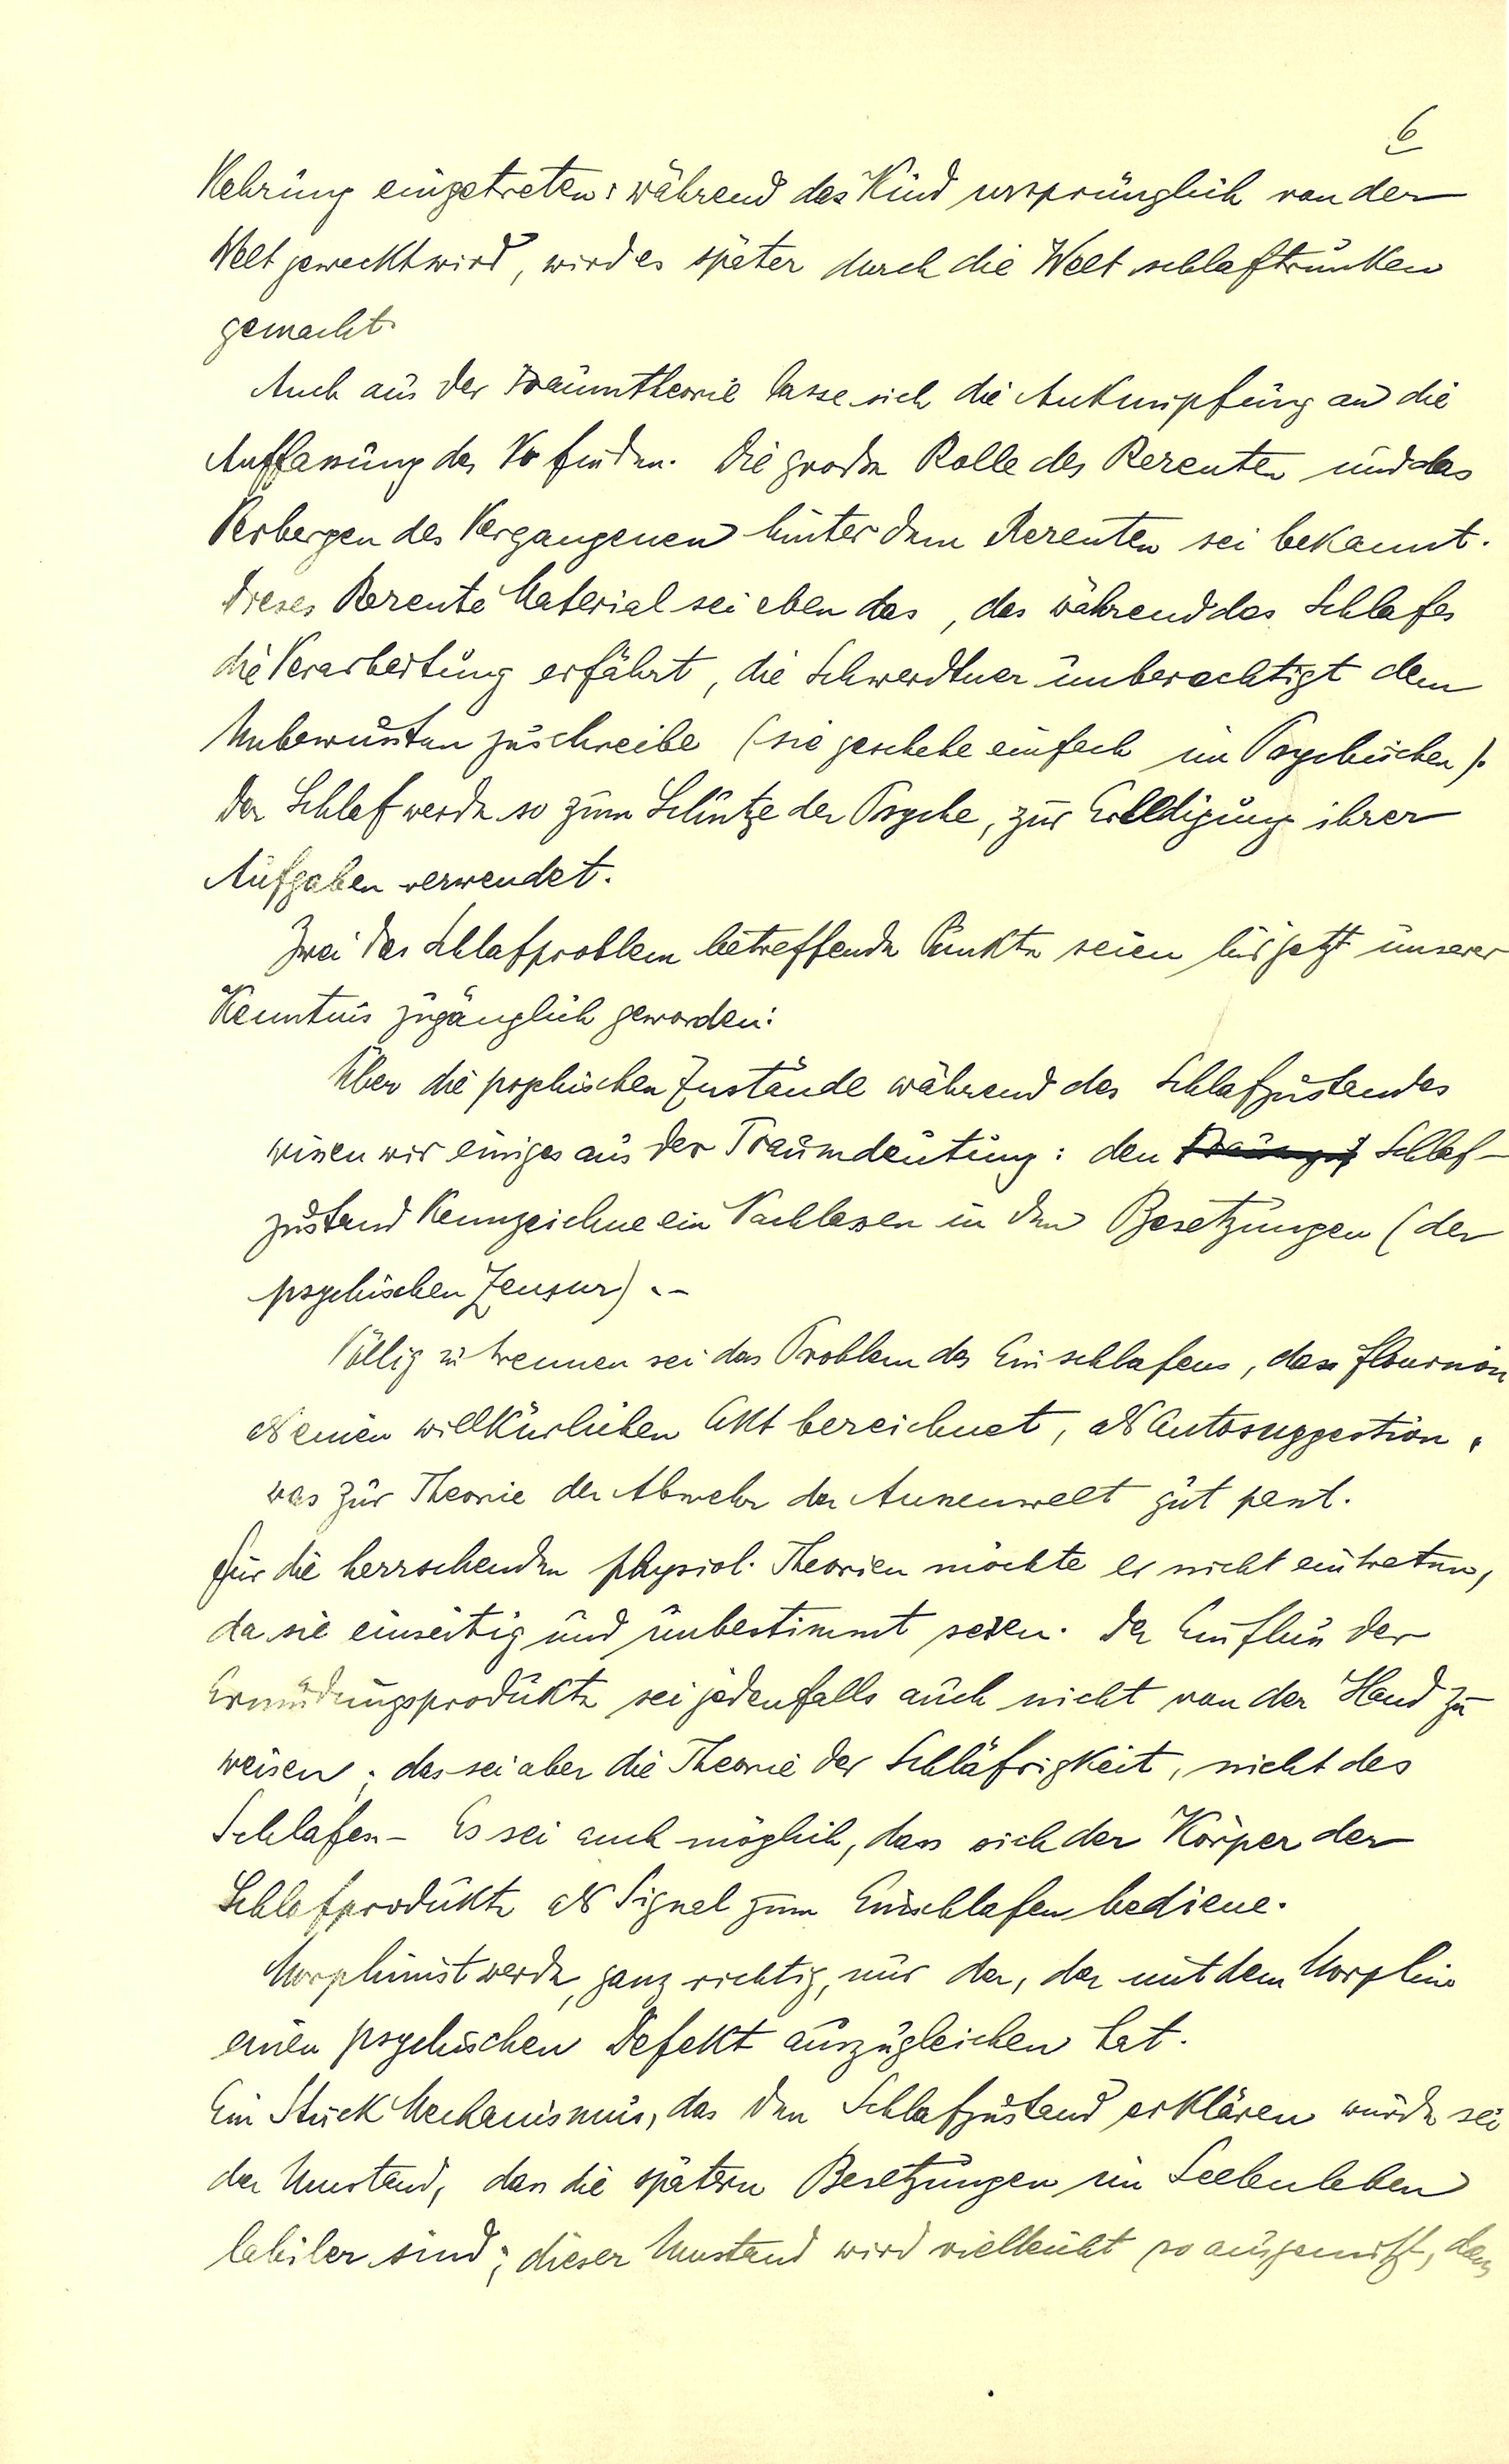 6
Kehrung eingetreten: während das Kind ursprünglich von der
Welt geweckt wird, wird es später durch die Welt schlaftrunken
gemacht.
Auch aus der Traumtheorie lasse sich die Anknüpfung an die
Auffassung des Vo finden. Die große Rolle des Rezenten und das
Verbergen des Vergangenen hinter dem Rezenten sei bekannt.
Dieses Rezente Material sei eben das, das während des Schlafes
die Verarbeitung erfährt, die Schwerdtner unberechtigt dem
Unbewußten zuschreibe (sie geschehe einfach im Psychischen).
Der Schlaf werde so zum Schutze der Psyche, zur Erledigung ihrer
Aufgaben verwendet.
Zwei das Schlafproblem betreffende Punkte seien bis jetzt unserer
Kenntnis zugänglich geworden:
Über die psychischen Zustände während des Schlafzustandes
wissen wir einiges aus der Traumdeutung: den Schlaf-
zustand kennzeichne ein Nachlassen in den Besetzungen (der
psychischen Zensur). -
Völlig zu trennen sei das Problem des Einschlafens, das
als einen willkürlichen Akt bezeichnet, als Autosuggestion,
was zur Theorie der Abwehr der Aussenwelt gut passt.
Für die herrschenden physiol. Theorien möchte er nicht eintreten,
da sie einseitig und unbestimmt seien. Der Einfluß der
Ermüdungsprodukte sei jedenfalls auch nicht von der Hand zu
weisen; das sei aber die Theorie der Schläfrigkeit, nicht des
Schlafes - Es sei auch möglich, dass sich der Körper der
Schlafprodukte als Signal zum Einschlafen bediene.
Morphinist werde, ganz richtig, nur der, der mit dem Morphin
einen psychischen Defekt auszugleichen hat.
Ein Stück Mechanismus, das den Schlafzustand erklären würde sei
der Umstand, dass die spätern Besetzungen im Seelenleben
labiler sind; dieser Umstand wird vielleicht so ausgenützt, dass